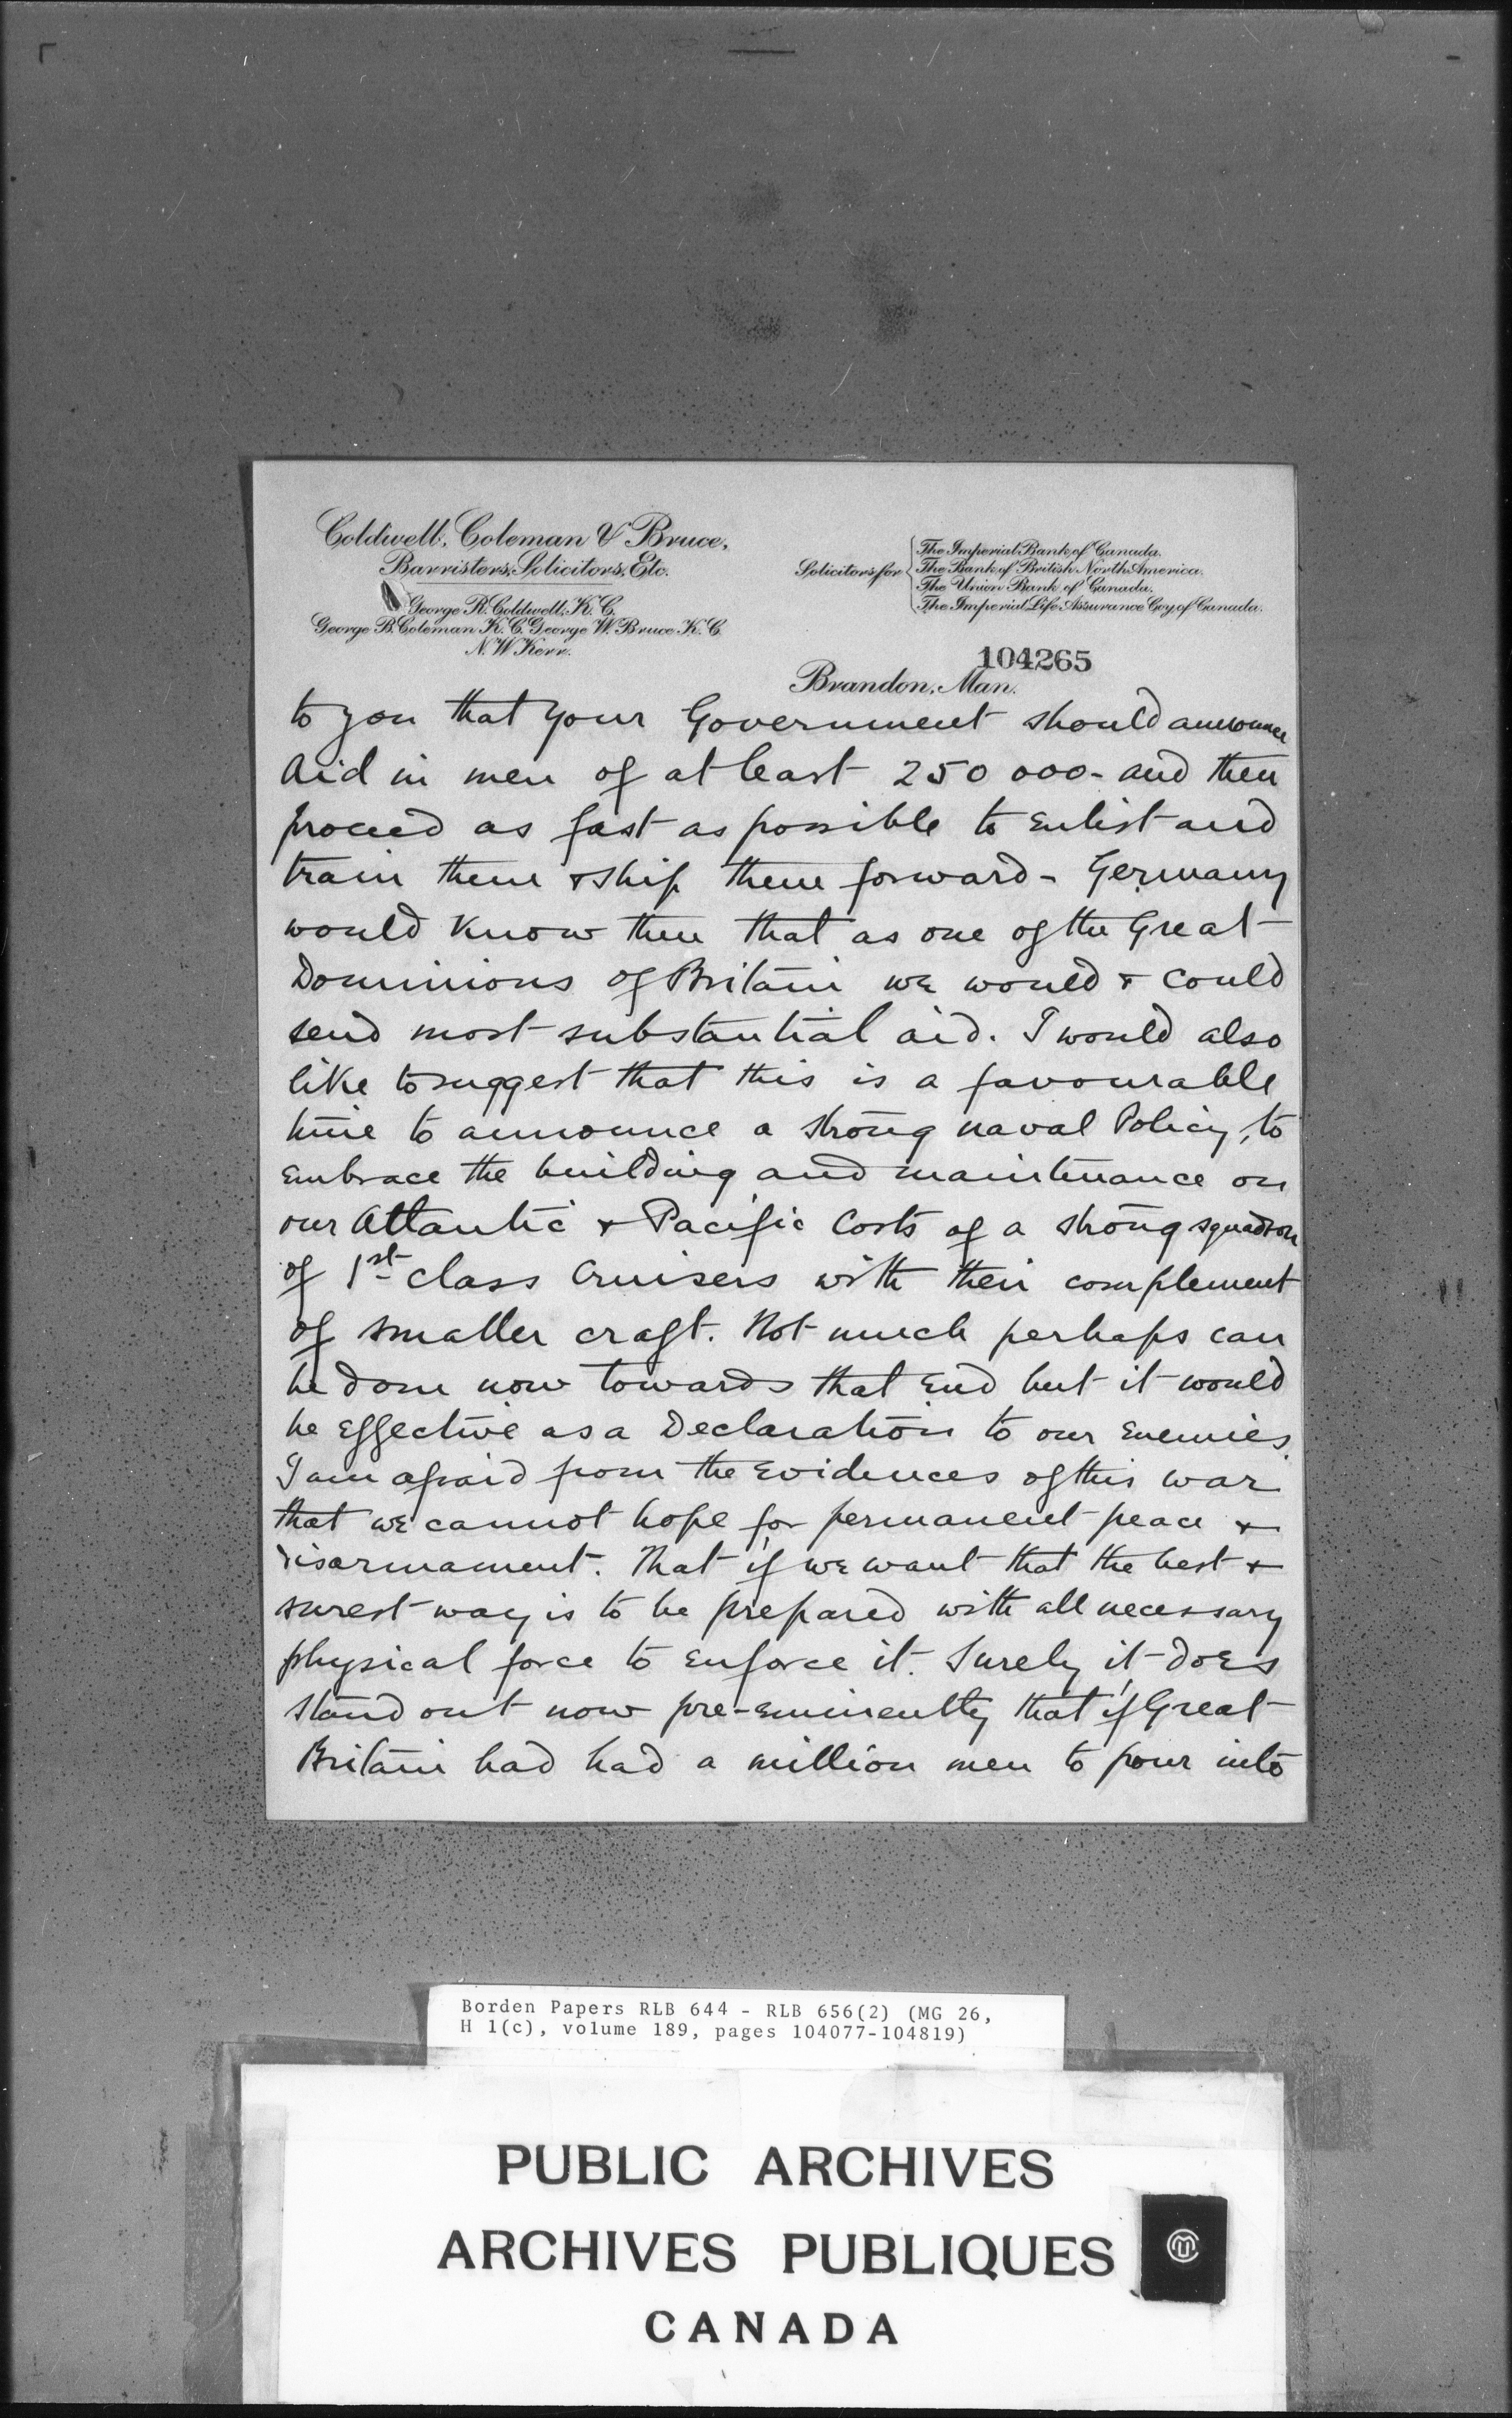 Coldwell, Coleman & Bruce,
Barristers, Solicitors, Etc.
George R. Coldwell, K.C.
George B. Coleman K.C. George W. Bruce K.C.
N.W. Kerr.
Solicitors for
The Imperial Bank of Canada.
The Bank of British North America.
The Union Bank of Canada.
The Imperial Life Assurance Coy. of Canada.
104265
Brandon, Man.
to you that your Government should announce
Aid in men of at least 250 000 - and then
proceed as fast as possible to Enlist and
train them & ship them forward - Germany
would Know then that as one of the Great
Dominions of Britain we would & could
send most substantial aid. I would also
like to suggest that this is a favourable
time to announce a strong naval Policy, to
Embrace the building and maintenance on
our Atlantic & Pacific Costs of a strong squadron
of 1st class Cruisers with their complement
of smaller craft. Not much perhaps can
be done now towards that End but it would
be Effective as a Declaration to our Enemies.
I am afraid from the Evidences of this war
that we cannot hope for permanent peace &
disarmament. That if we want that the best &
surest way is to be prepared with all necessary
physical force to Enforce it. Surely it does
stand out now pre-eminently that if Great
Britain had had a million men to pour into
Borden Papers RLB 644 - RLB 656(2) (MG 26,
H 1(c), volume 189, pages 104077-104819)
PUBLIC ARCHIVES
ARCHIVES PUBLIQUES
CANADA